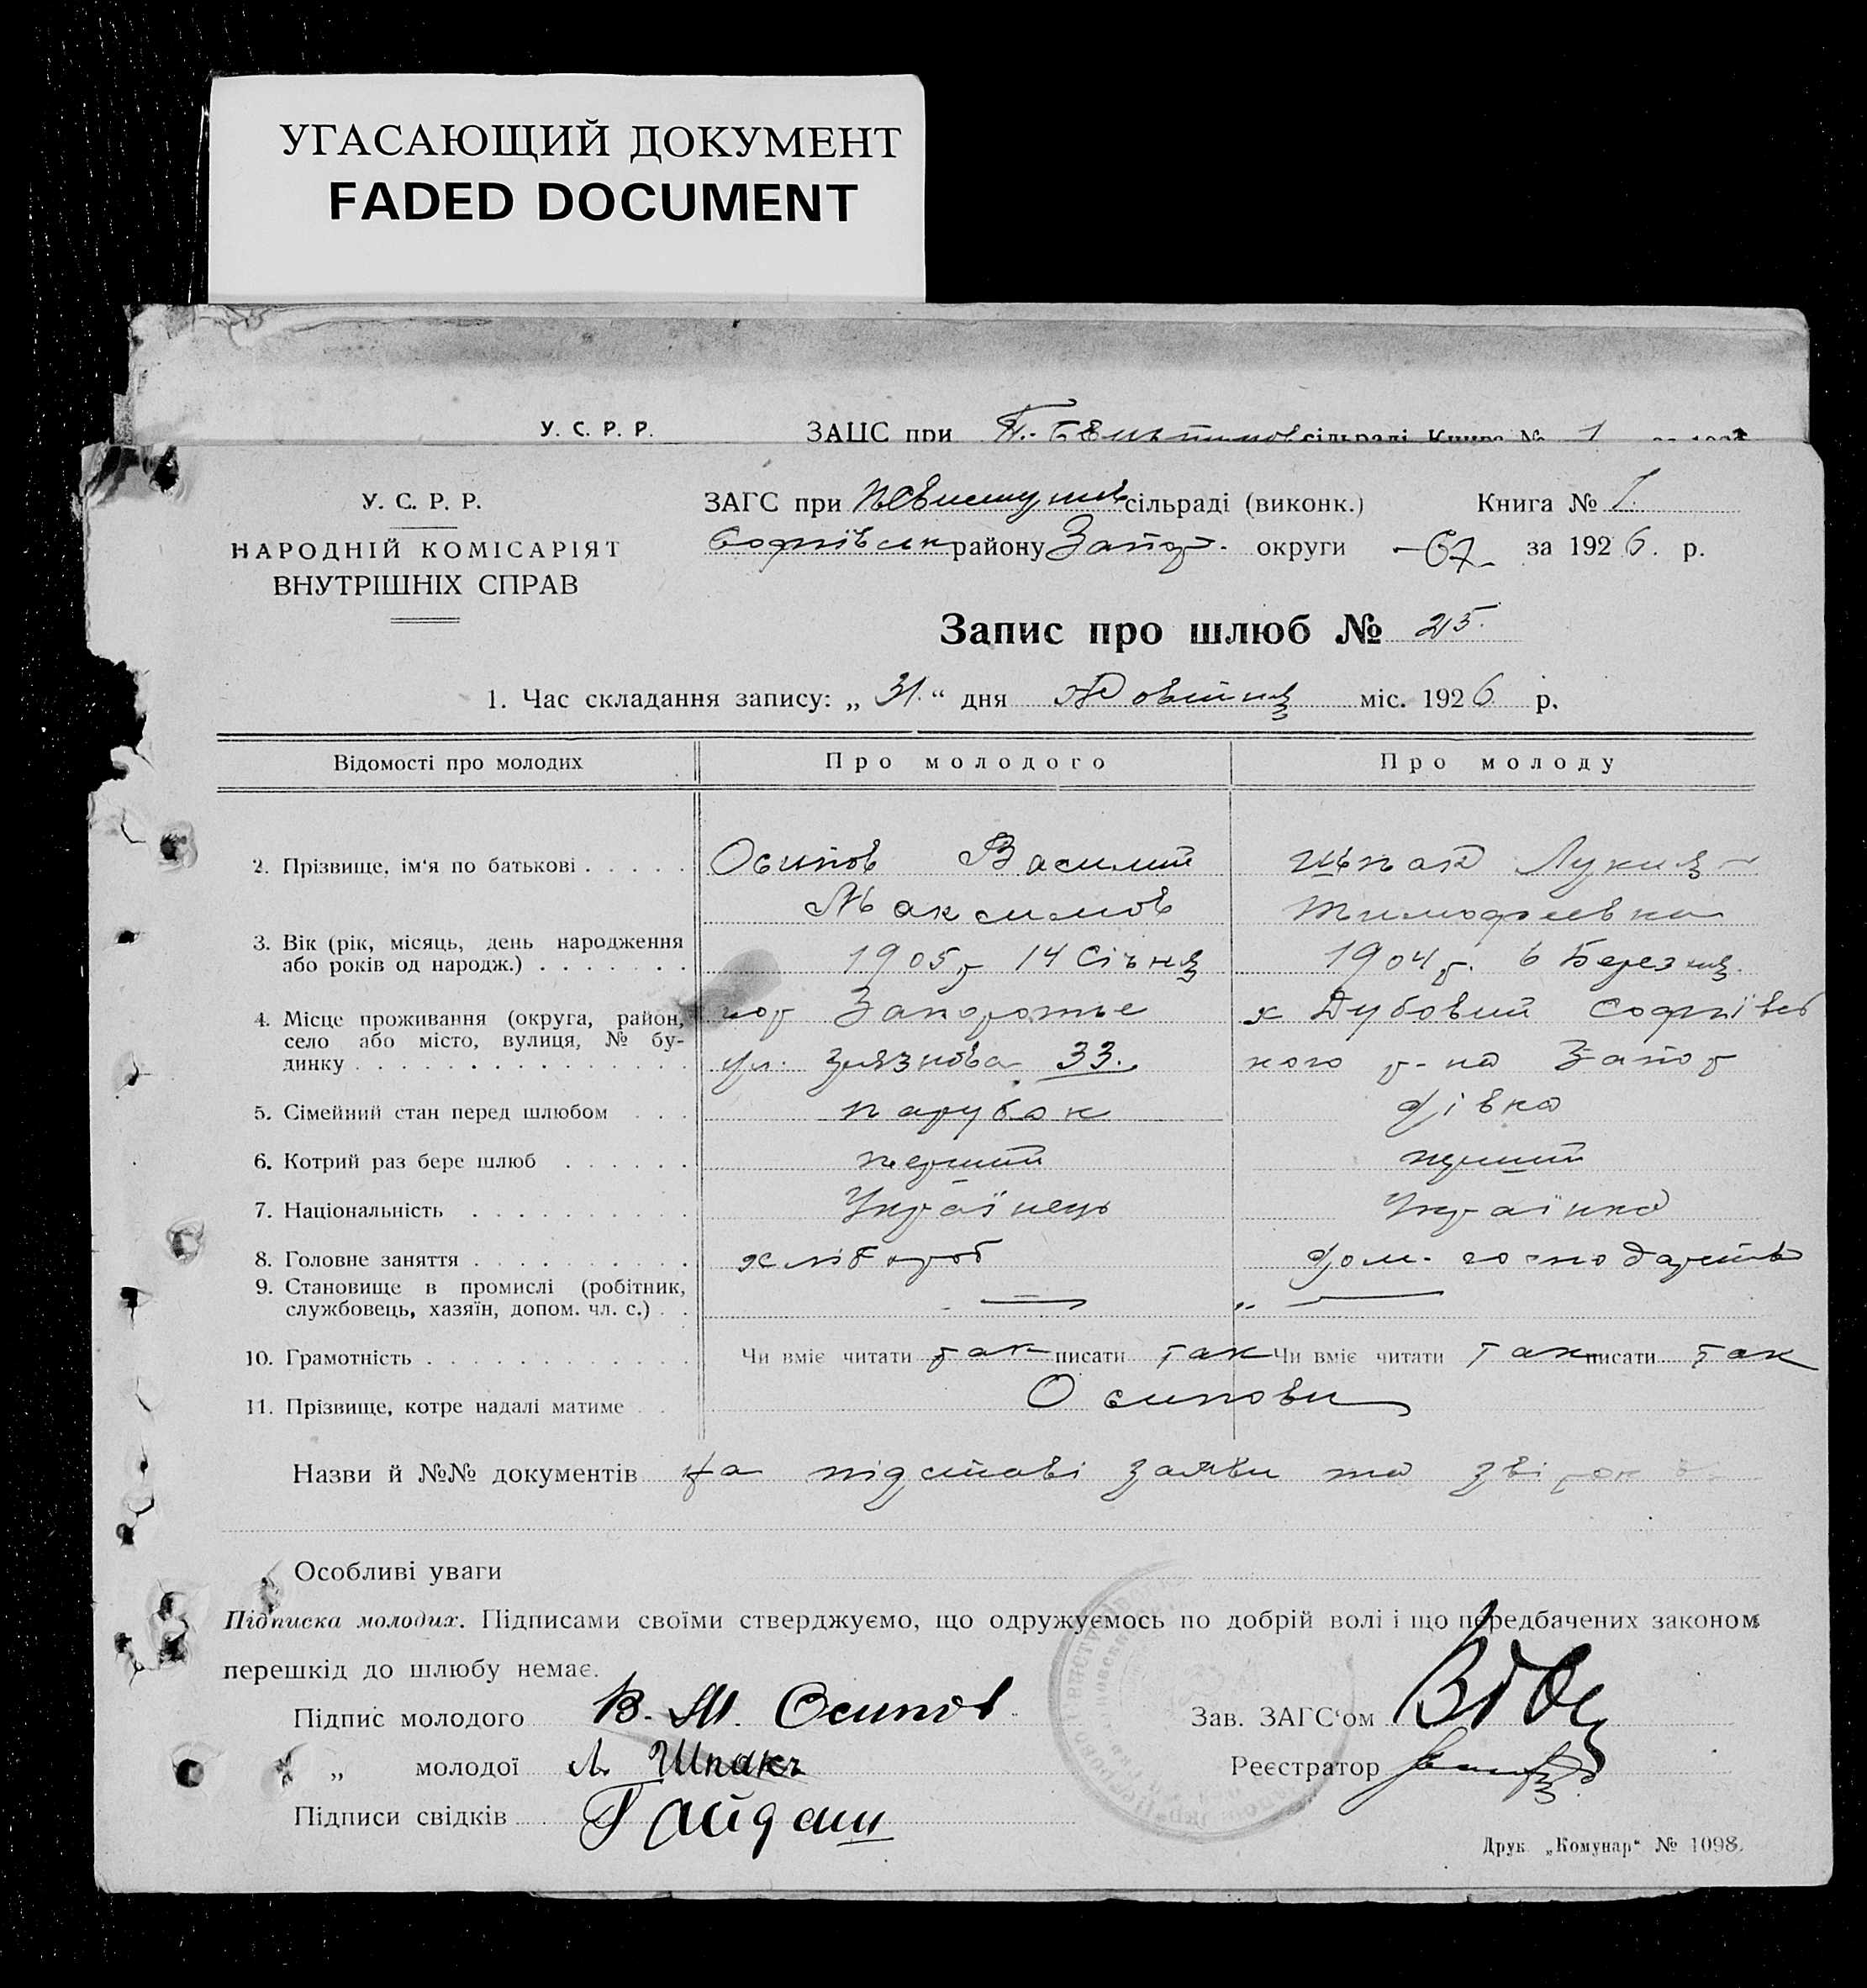 УГАСАЮЩИЙ ДОКУМЕНТ
FADED DOCUMENT
У. С. Р. Р. ЗАГС при сільраді Книга № 1
У. С. Р. Р.
НАРОДНІЙ КОМІСАРІЯТ
ВНУТРІШНІХ СПРАВ
ЗАГС при сільраді (виконк.) Книга № 1.
Софіївськ району Запор. округи за 1926. р.
Запис про шлюб № 25.
1. Час складання запису: „31.“ дня Жовтня міс. 1926 р.
Відомості про молодих Про молодого Про молоду
2. Прізвище, ім'я по батькові Осипов Василий Шпак Лукия
Максимов Тимофеевна
3. Вік (рік, місяць, день народження або років од народж.) 1905 р 14 Січня 1904 р. 6 Березня.
4. Місце проживання (округа, район, село або місто, вулиця, № будинку гор Запорожье х Дубовий Софіївсь
ул. 33. кого р-на Запор
5. Сімейний стан перед шлюбом парубок дівка
6. Котрий раз бере шлюб перший перший
7. Національність Українець Українка
8. Головне заняття хлібороб дом. господарств
9. Становище в промислі (робітник, службовець, хазяїн, допом. чл. с.) — „ —
10. Грамотність Чи вміє читати так писати так Чи вміє читати так писати так
11. Прізвище, котре надалі матиме Осипови
Назви й №№ документів На підставі заяви та
Особливі уваги
Підписка молодих. Підписами своїми стверджуємо, що одружуємось по добрій волі і що передбачених законом
перешкід до шлюбу немає.
Підпис молодого В. М. Осипов Зав. ЗАГС'ом
„ молодої Л. Шпакъ Реєстратор
Підписи свідків Гайдаш
Друк „Комунар“ № 1098.